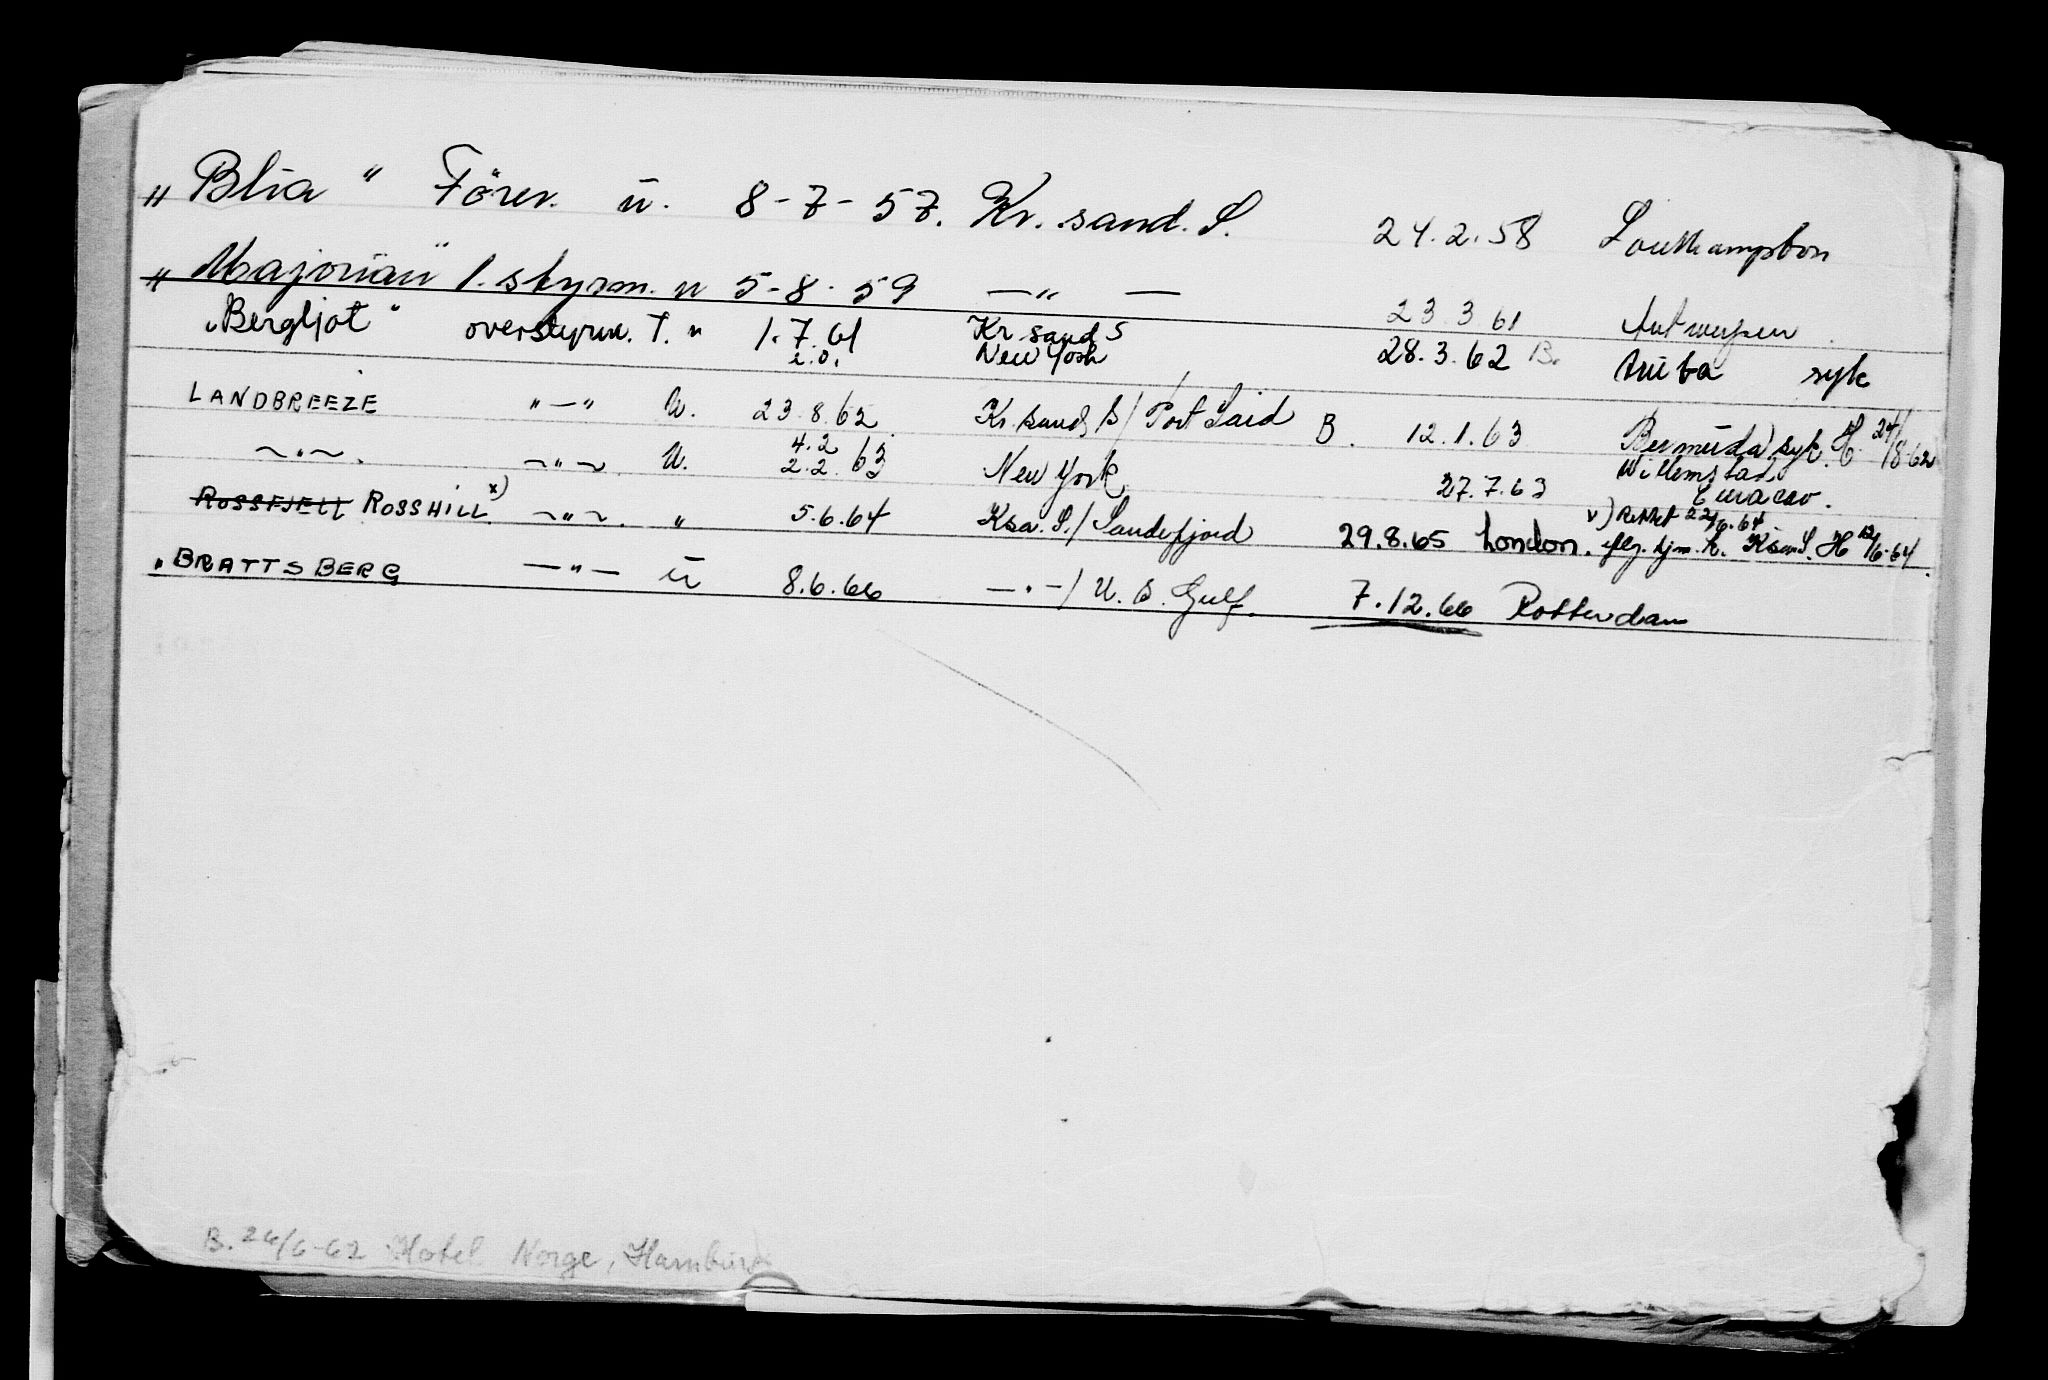 „ Blia " Förer. ü. 8-7-57. Kr. sand. S. 24.2.58 Southampton
„ Majorian" 1. styrm. u 5-8-59 —„— 23.3.61 Antwerpen
„Bergljot" overstyrm. T. u 1.7.61 Kr. sand S 28.3.62 B. Aruba syk
i.o. New York
LANDBREEZE "—" U. 23.8.62 Kr. sand, S / Port Said B. 12.1.63 Bermuda syk. H 24/8-62
4.2
~"~. ~"~. U. 2.2. 63 New York, 27.7.63 Willemstad
Curacao.
ROSSFJELL ROSSHILL x) ~"~. " 5.6.64 Ksa. S. / Sandefjord 29.8.65 London. v) Rettet 22/6.64
Ksan S. H 12/6-64.
„BRATTSBERG —"— ü 8.6.66 —"— / U. S. Gulf. 7.12.66 Rotterdam
B. 26/6-62 Hotel Norge, Hamburg